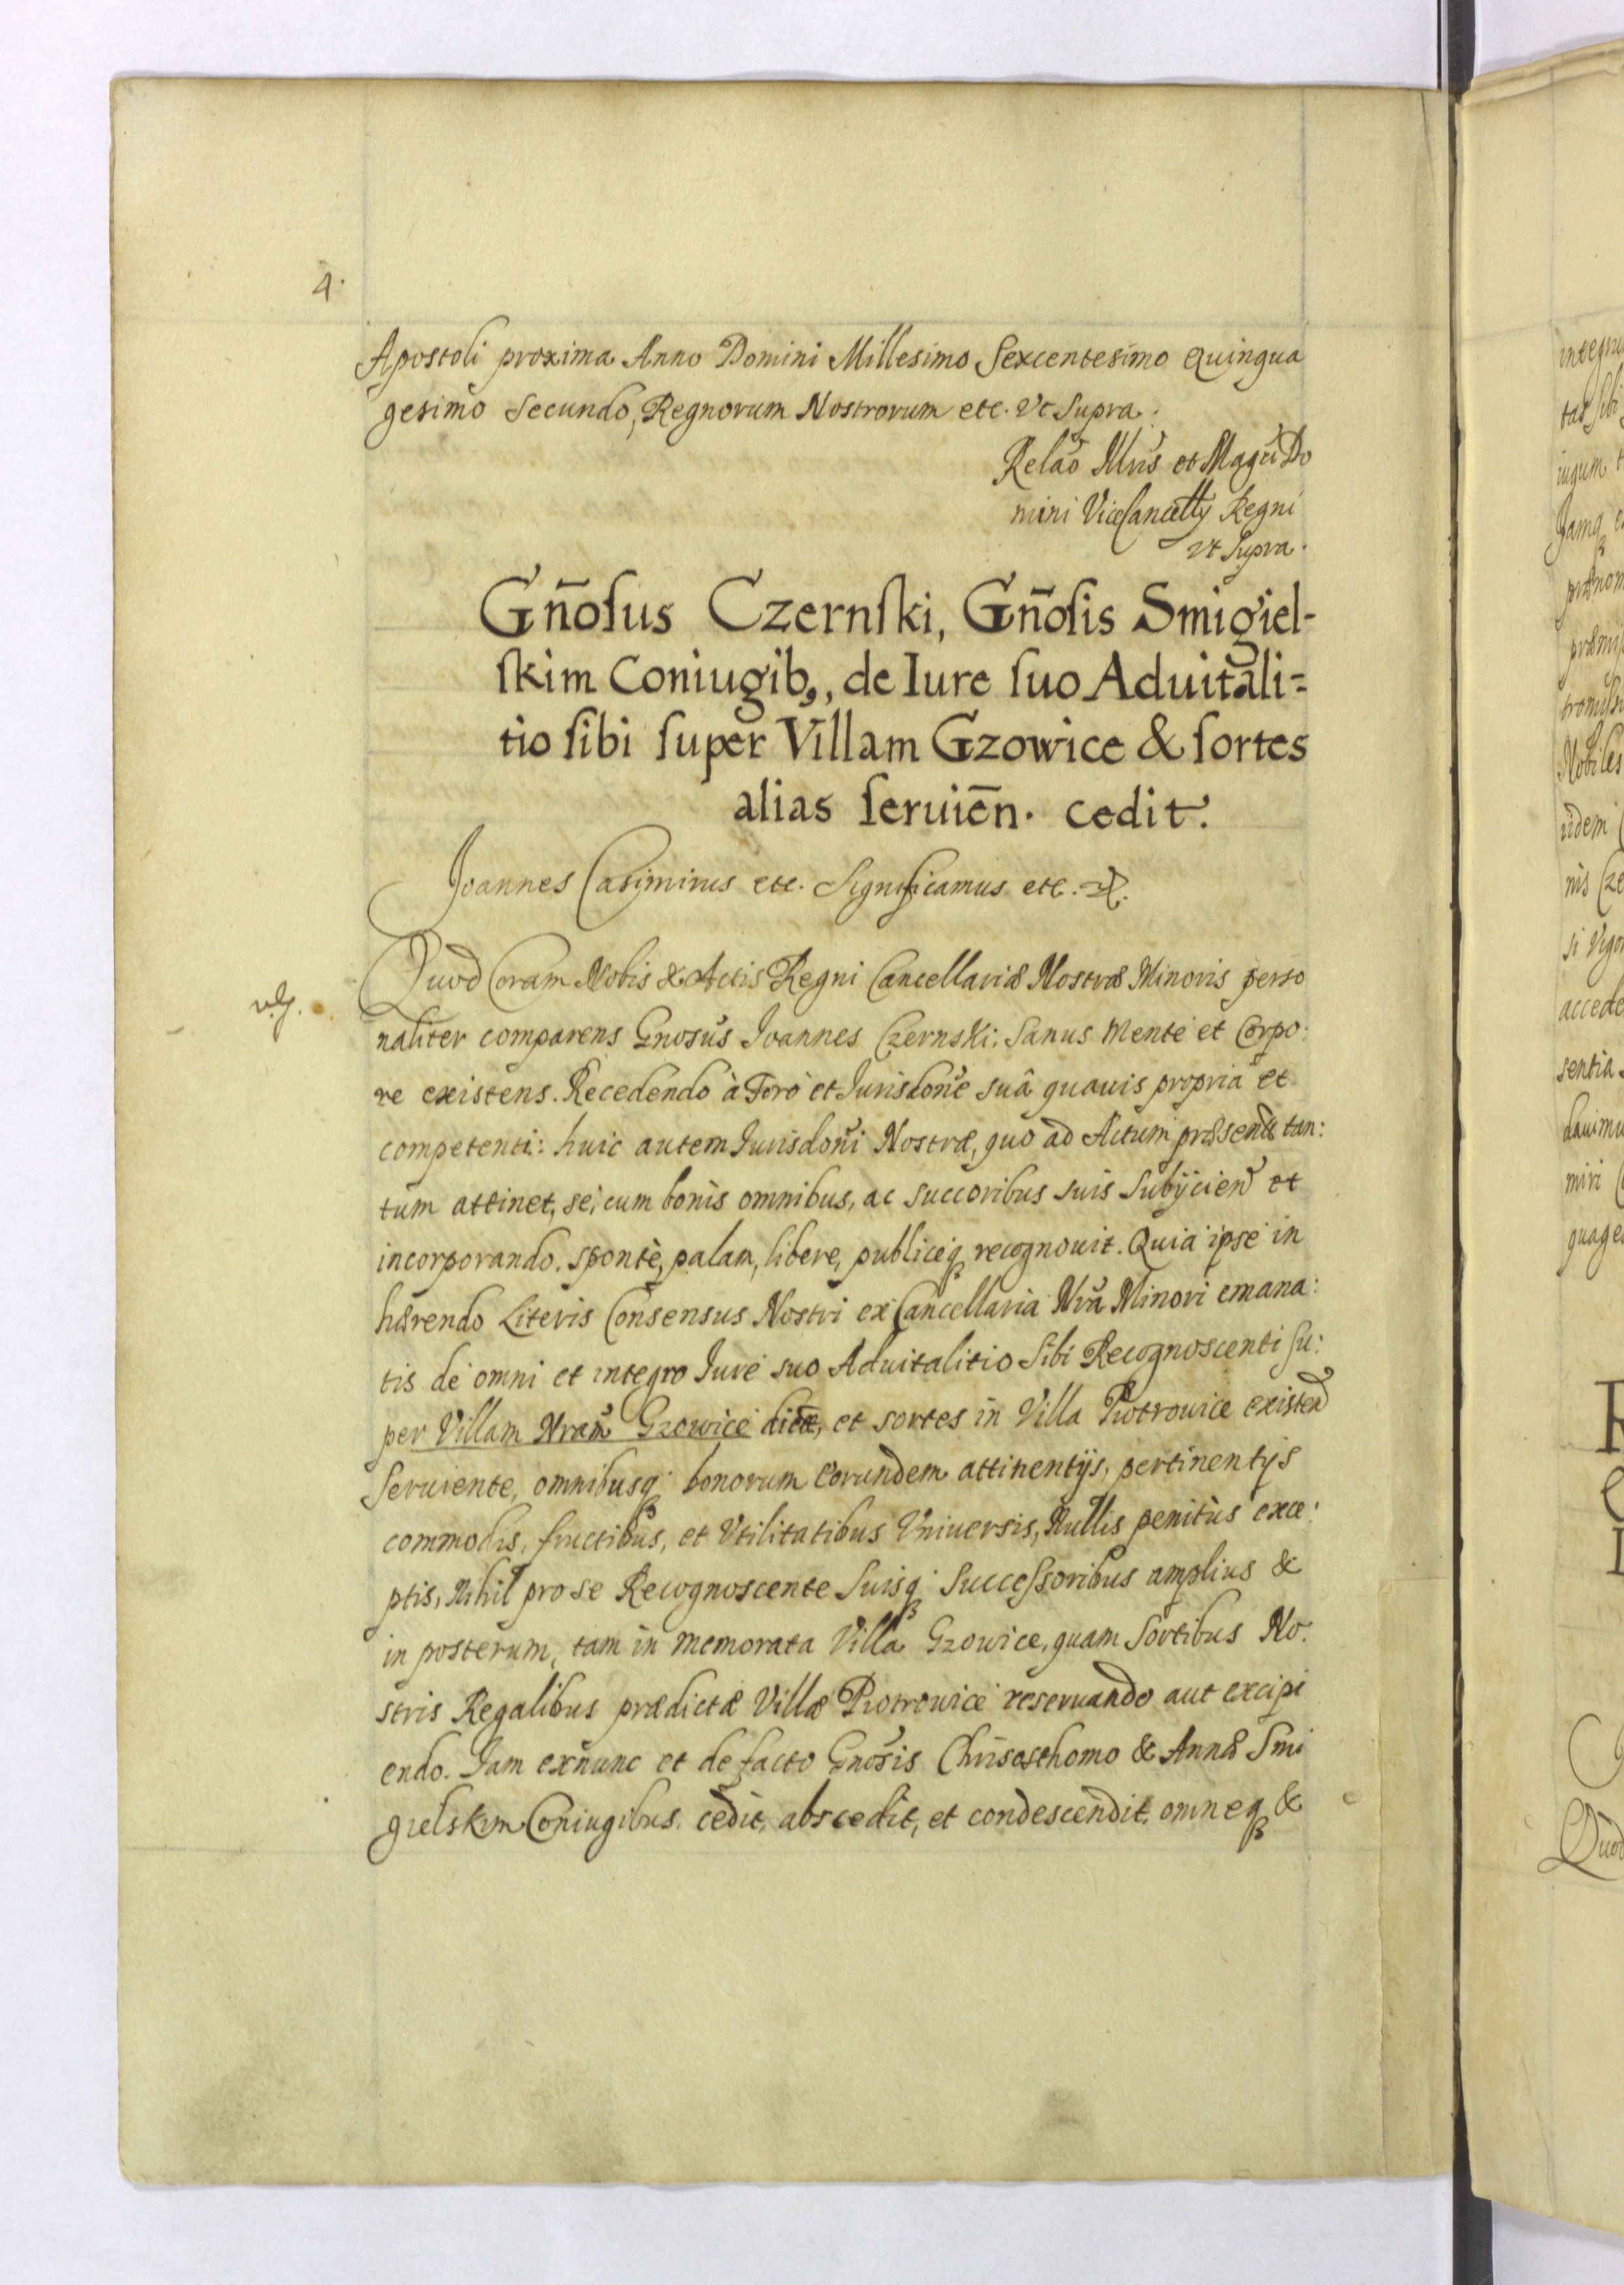 4.
Apostoli proxima Anno Domini Millesimo Sexcentesimo Quinqua
gesimo Secundo, Regnorum Nostrorum etc. Vt Supra.
Relao Illris et Magci Do
mini ViceCancelly Regni
vt Supra.
Gn̄oſus Czernſki, Gn̄oſis Smigiel-
ſkim Coniugib9, de Iure ſuo Aduitali=
tio ſibi ſuper Villam Gzowice & ſortes
alias ſeruiēn. cedit.
Joannes Casimirus etc. Significamus etc.
Quod Coram Nobis & Actis Regni Cancellariæ Nostræ Minoris perso
naliter comparens Gnosus Joannes Czernski: Sanus Mente et Corpo:
re existens. Recedendo à Foro et Jurisdone suâ quauis propria et
competenti: huic autem Jurisdoni Nostræ, quo ad Actum præsente tan:
tum attinet, se, cum bonis omnibus, ac succoribus suis Subijcien et
incorporando. sponte, palam, libere, publiceq recognouit. Quia ipse in
hærendo Literis Consensus Nostri ex Cancellaria Nra Minori emana:
tis de omni et integro Jure suo Aduitalitio Sibi Recognoscenti Su:
per Villam Nram Gzowice dictæ, et sortes in Villa Piotrowice existen
Seruiente, omnibusq bonorum Eorundem attinentijs, pertinentijs
commodis, fructibus, et Vtilitatibus Vniuersis, Nullis penitùs exce:
ptis, Nihil pro se Recognoscente Suisq Succeſsoribus amplius &
in posterum, tam in memorata Villa Gzowice, quam Sortibus No:
stris Regalibus prædictæ Villæ Piotrowice reseruando aut excipi
endo. Jam exnunc et de facto Gnosis Chrisosthomo & Annæ Smi
gielskim Coniugibus. cedit, abscedit, et condescendit, omneq &